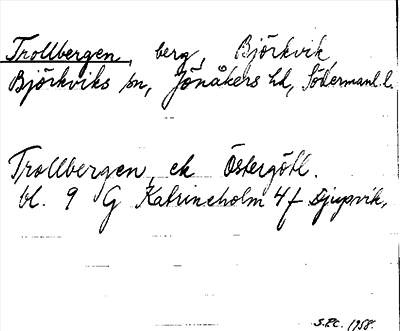 Trollbergen, berg, Björkvik,
Björkviks sn, Jönåkers hd, Södermanl. l.
Trollbergen, ek Östergötl.
bl. 9 G Katrineholm 4f Djupvik.
S.P.C. 1958.